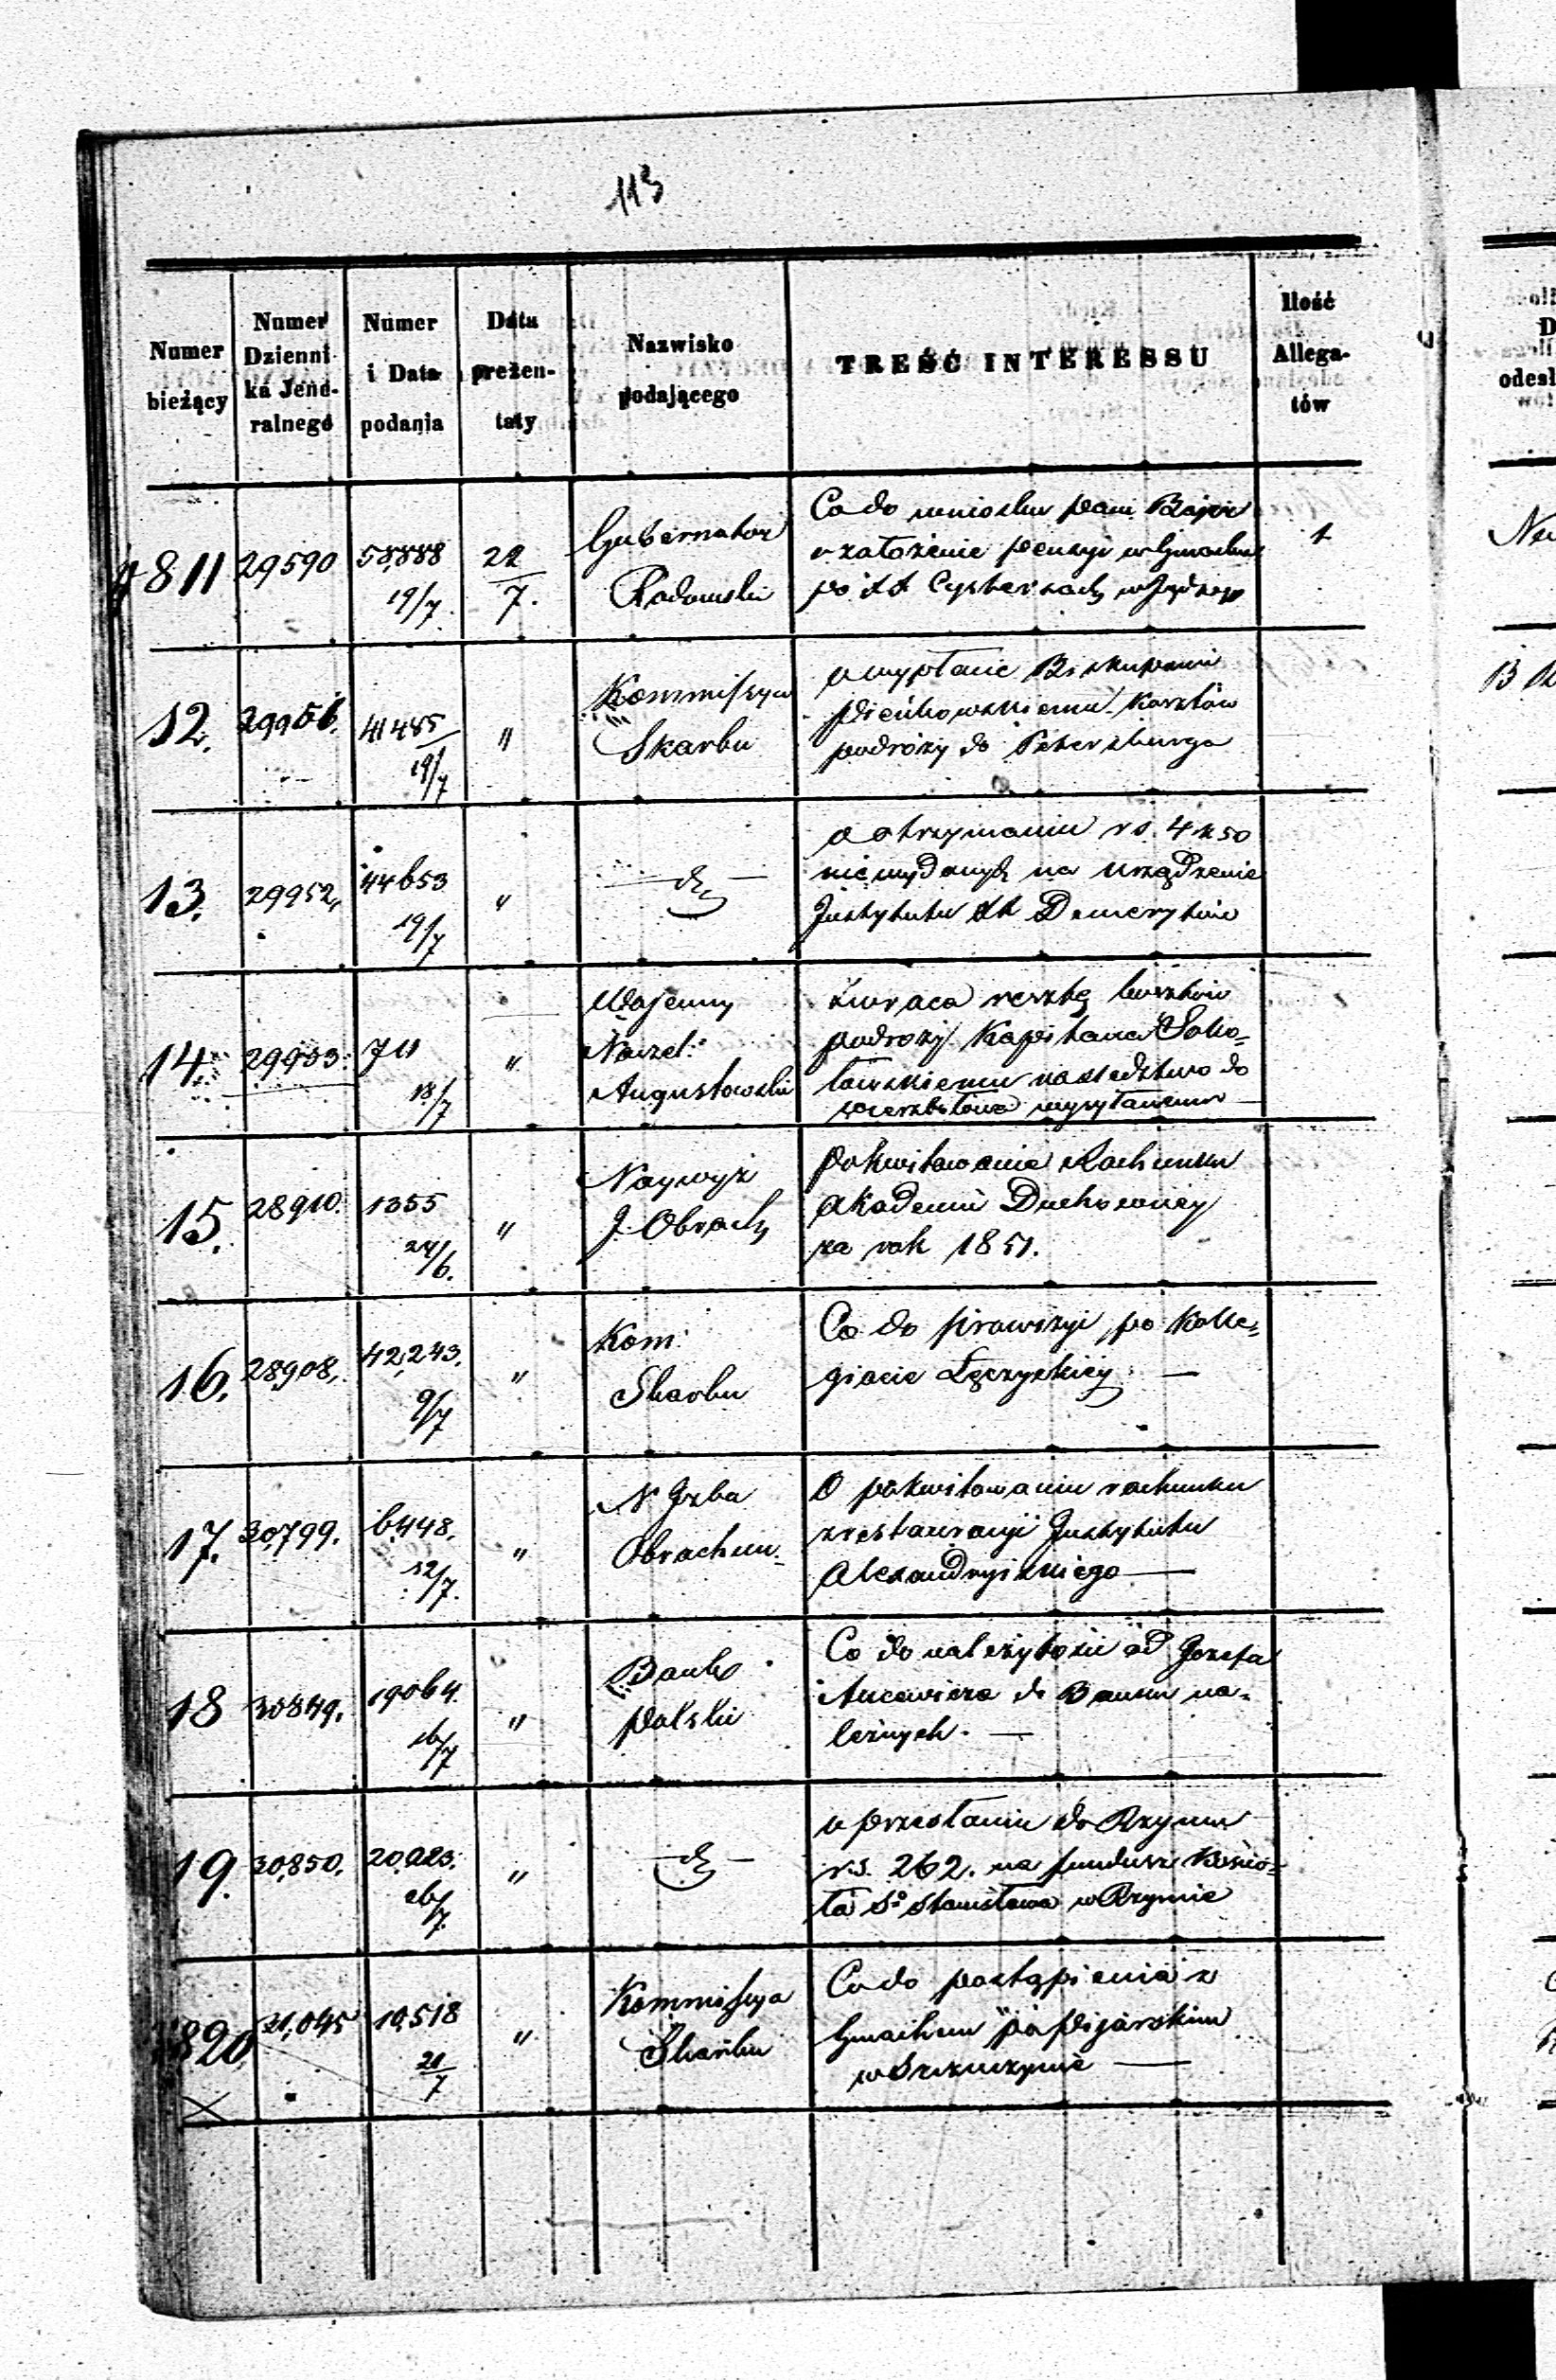 113
Numer bieżący
Numer Dzienni- ka Jene- ralnego
Numer i Data podania
Data prezen- taty
Nazwisko podającego
TREŚĆ INTERESSU
Ilość Allega- tów
811 29590 58,888 19/7. 22/7. Gubernator Radomski
Co do wniosku pani
o założenie pensyi w Gmachu
po XX Cystersach w
1
12. 41485 19/7 " Kommissya Skarbu
o wypłacie Biskupowi
Pieńkowskiemu kosztów
podróży do Petersburga
13. 29952, 44653 19/7 "
o otrzymaniu rs. 4 k 50
niewydanych na urządzenie
Instytutu XX Demerytów
14 29953. 711 18/7 " Wojenny Naczel: Augustowski
Zwraca resztę kosztów
podroży Kapitana Soko-
łowskiemu na śledztwo do
Wierzbołowa wysyłanemu
15. 28910. 1355 24/6. " Naywyż J. Obrach
Pokwitowanie Rachunku
Akademii Duchowney
za rok 1851.
16. 28,908, 42,243. 9/7 " Kom: Skarbu
Co do prowizyi po Kolle-
giacie Łęczyckiey. —
17. 30,799. 6,448. 12/7. " N. Izba Obrachun-
O pokwitowaniu rachunku
z restauracyi Instytutu
Alexandryiskiego —
18 30849. 19064. 16/7 " Bank Polski
Co do należytości od Jozefa
do Banku na-
leżnych. —
19. 30,850. 20,023. "
o przesłaniu do Rzymu
r.s. 262. na fundusz Kościo-
ła So Stanisława w Rzymie
820 31,045 10,518 21/7 " Kommissya Skarbu
Co do postąpienia z
Gmachem po Pijarskim
w Szczuczynie —